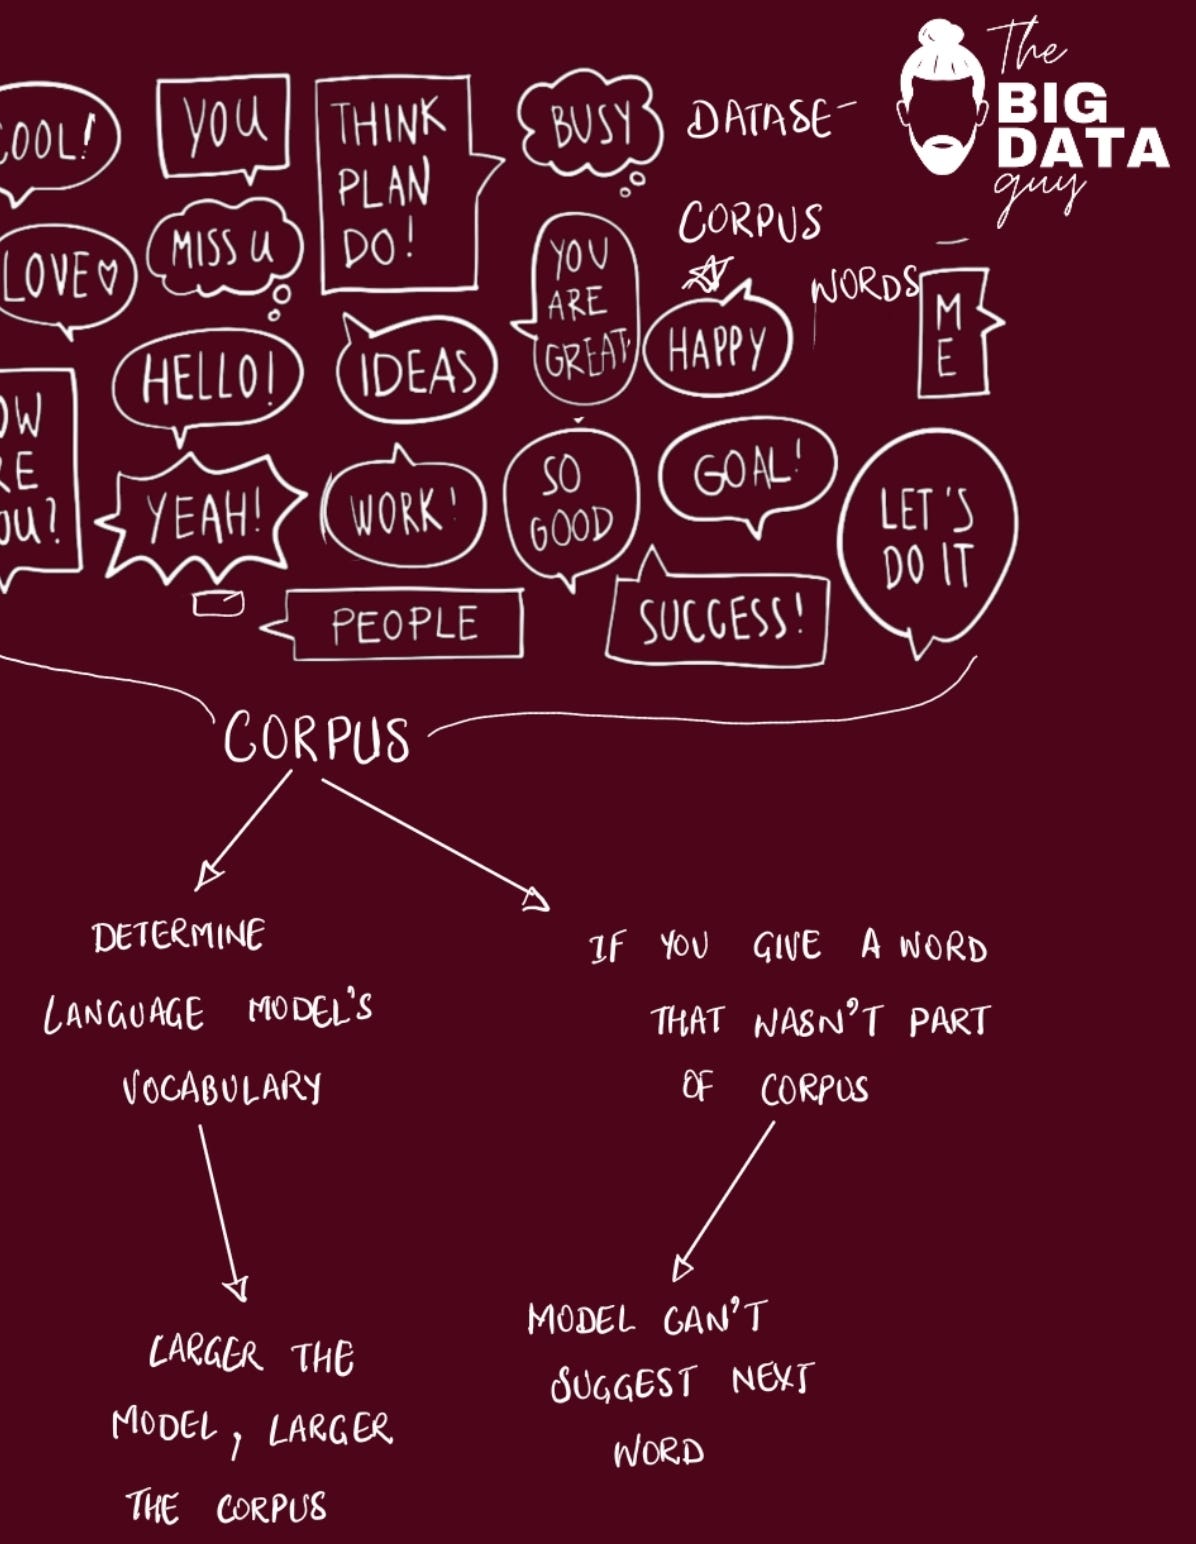 The
BIG
DATA
guy
COOL!
YOU
THINK
PLAN
DO!
BUSY
DATASE-
LOVE
MISS U
YOU
ARE
GREAT
CORPUS
WORDS
HAPPY
M
E
HELLO!
IDEAS
OW
RE
OU?
YEAH!
WORK!
SO
GOOD
GOAL!
LET'S
DO IT
PEOPLE
SUCCESS!
CORPUS
DETERMINE
LANGUAGE MODEL'S
VOCABULARY
IF YOU GIVE A WORD
THAT WASN'T PART
OF CORPUS
LARGER THE
MODEL, LARGER
THE CORPUS
MODEL CAN'T
SUGGEST NEXT
WORD